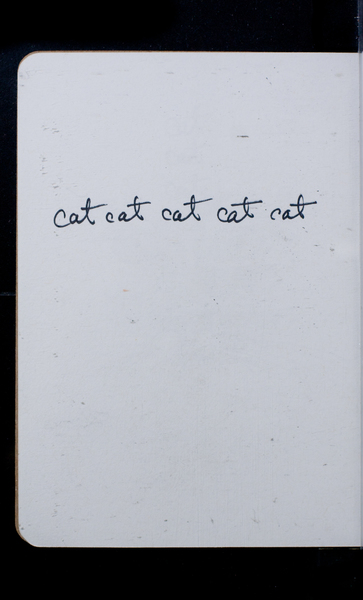 cat cat cat cat cat